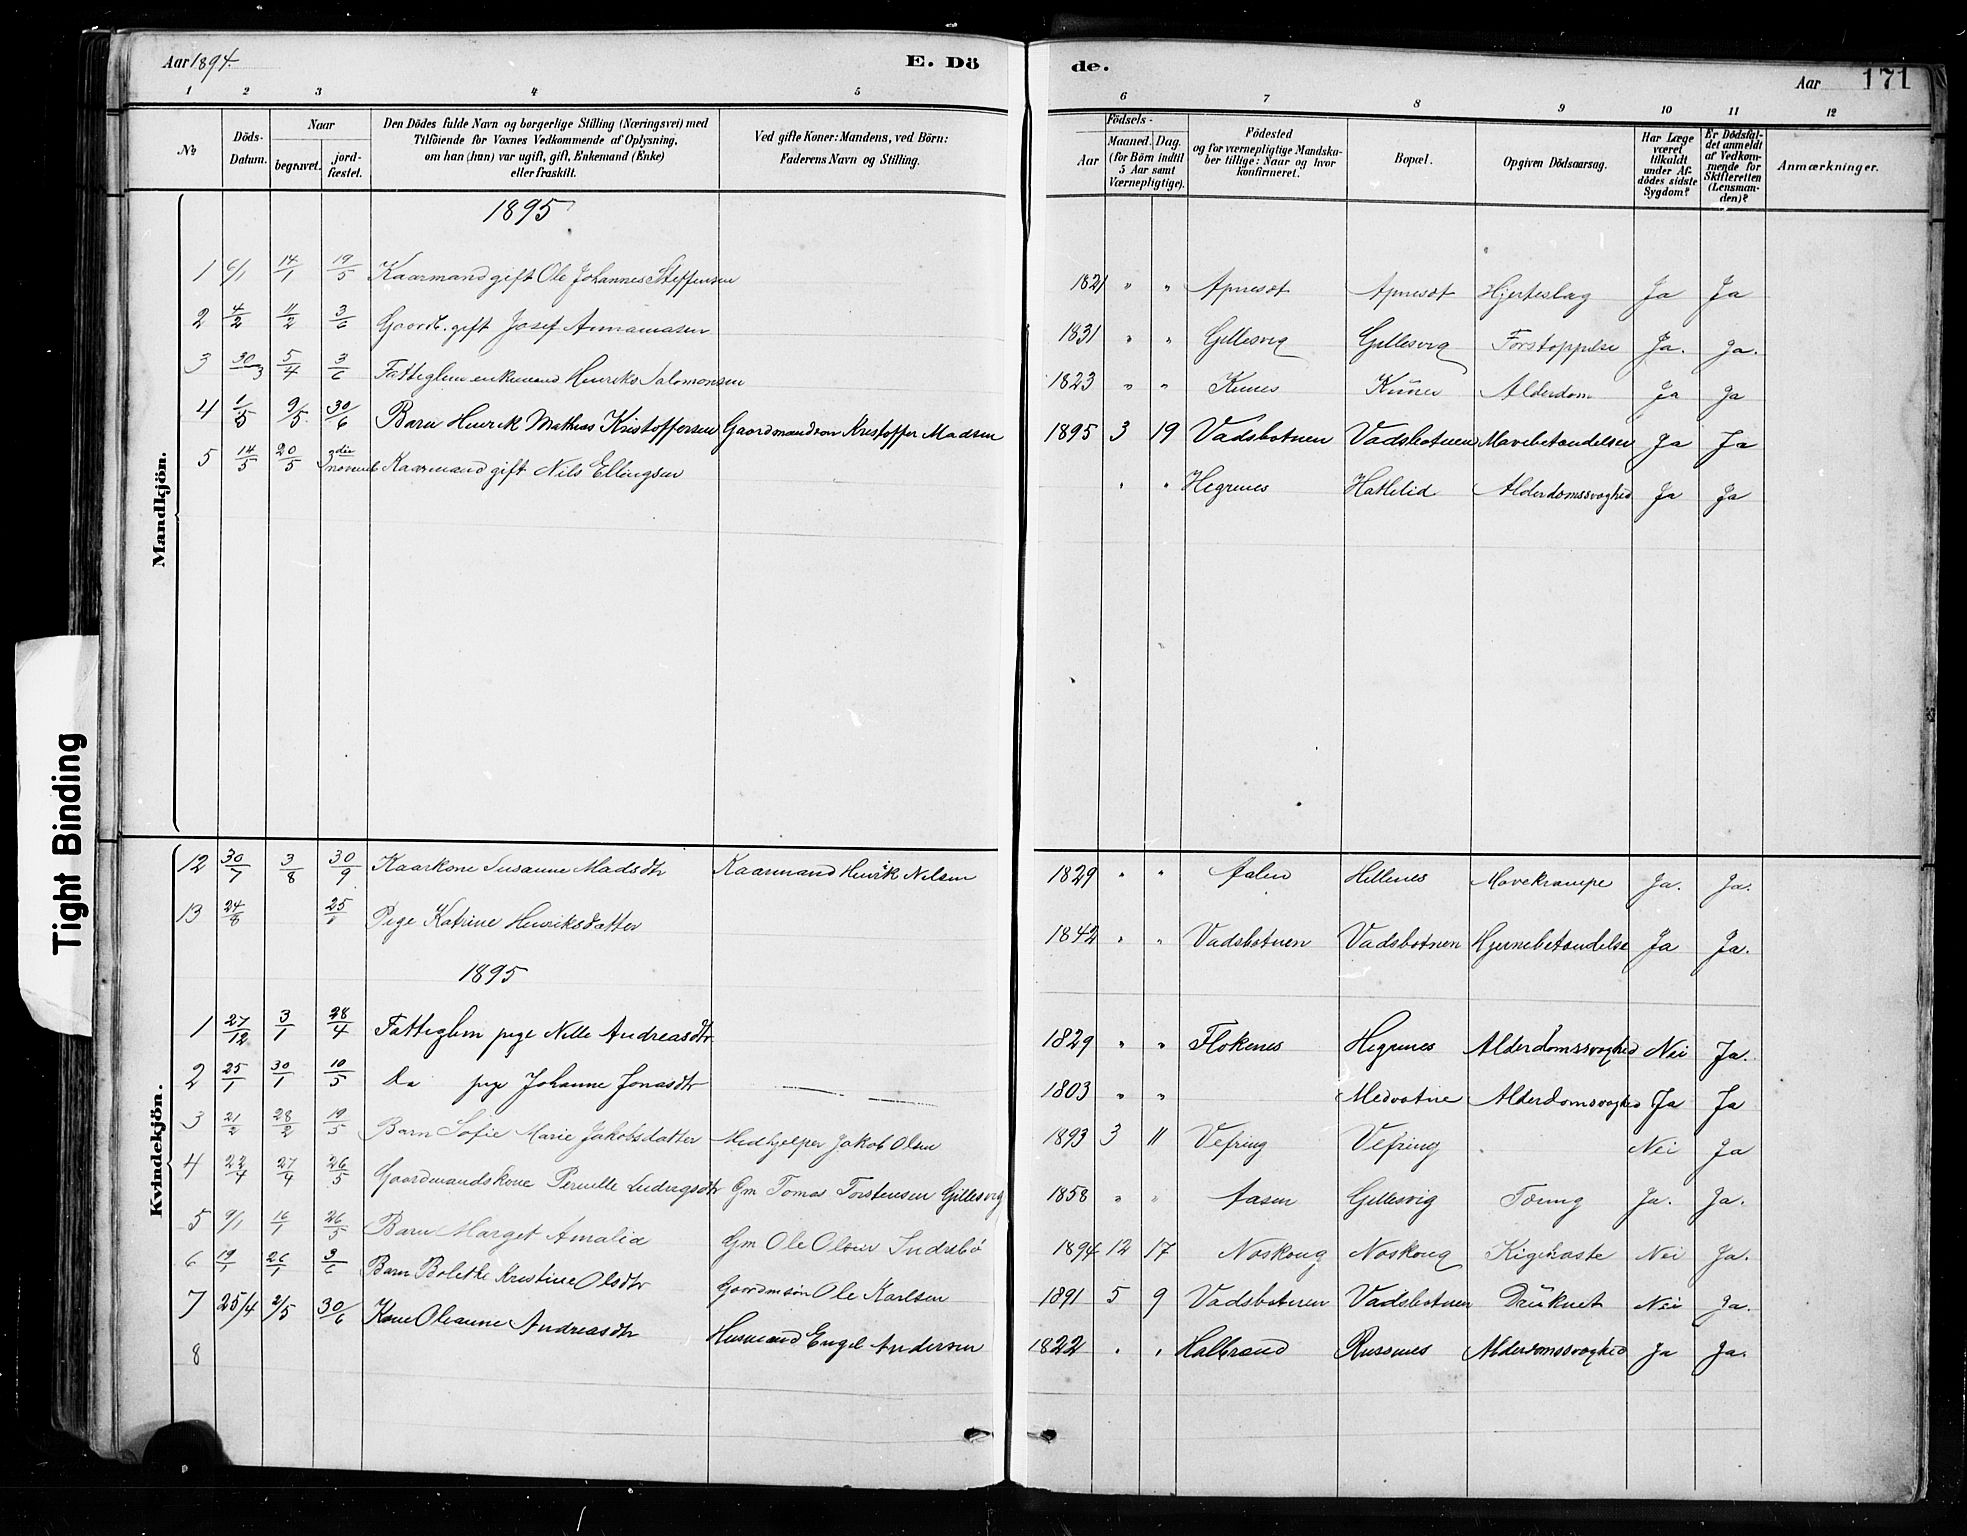 Aar 1894. E. Dö de. Aar 171
1 2 3 4 5 6 7 8 9 10 11 12
No Döds-Datum. Naar begravet. jordfæstet. Den Dödes fulde Navn og borgerlige Stilling (Næringsvei) med Tilföiende for Voxnes Vedkommende af Oplysning, om han (hun) var ugift, gift, Enkemand (Enke) eller fraskilt. Ved gifte Koner: Mandens, ved Börn: Faderens Navn og Stilling. Födsels- Aar Maaned. Dag. (for Börn indtil 5 Aar samt Værnepligtige). Födested og for værnepligtige Mandskaber tillige: Naar og hvor konfirmeret. Bopæl. Opgiven Dödsaarsag. Har Læge været tilkaldt under Afdödes sidste Sygdom? Er Dödsfaldet anmeldt af Vedkommende for Skifteretten (Lensmanden)? Anmærkninger.
Mandkjön.
1895
1 6/1 14/1 19/5 Kaarmand gift Ole Johannes Steffensen 1821 " " Apnesæt Apnesæt Hjerteslag Ja Ja
2 4/2 11/2 3/6 Gaardb. gift Josef Annanasen 1831 " " Gillesvig Gillesvig Forstoppelse Ja. Ja.
3 30/3 5/4 3/6 Fattiglem enkemand Henriks Salomonsen 1823 " " Kunes Ja Ja Alderdom
4 1/5 9/5. 30/6 Barn Henrik Mathias Kristoffersen Gaardmandson Kristoffer Madsen 1895 3 19 Vadsbotnen Vadsbotnen Mavebetændelse Ja Ja
5 14/5 20/5 Kaarmand gift Nils Ellingsen " " Hegrenes Hatlelid Alderdomssvaghed Ja Ja
Kvindekjön.
12 30/7 3/8 30/9 Kaarkone Susanne Madsdtr Kaarmand Henrik Nilsen 1829 " " Aalen Hellenes Mavekrampe Ja. Ja.
13 24/8 25/1 Pige Katrine Henriksdatter 1842 " " Vadsbotnen Vadsbotnen Hjernebetændelse Ja Ja.
1895
1 27/12 3/1 28/4 Fattiglem pige Nille Andreasdtr 1829 " " Flokenes Hegrenes Alderdomssvaghed Nei Ja.
2 25/1 30/1 10/5 Do pige Johanne Jonasdtr 1803 " " Medvatne Alderdomsvaghed Ja Ja
3 21/2 28/2 19/5 Barn Sofie Marie Jakobsdatter Medhjelper Jakob Olsen 1893 3 11 Vefring Vefring Nei Ja
4 22/4 27/4 26/5 Gaardmandskone Pernille Ludvigsdtr Gm Tomas Torstensen Gillesvig 1858 " " Aasen Gillesvig Tæring Ja. Ja.
5 9/1 16/1 26/5 Barn Marget Amalia Gm Ole Olsen Indrebö 1894 12 17 Naskoug Naskoug Kighoste Nei Ja.
6 19/1 26/1 3/6 Barn Bolethe Kristine Olsdtr Gaardmsön Ole Karlsen 1891 5 9 Vadsbotnen Vadsbotnen Druknet Nei Ja.
7 25/4 2/5 30/6 Kone Oleanne Andreasdtr Husmand Engel Andersen 1822 " " Halbrend Russenes Alderdomssvaghed Ja Ja.
8
Tight Binding